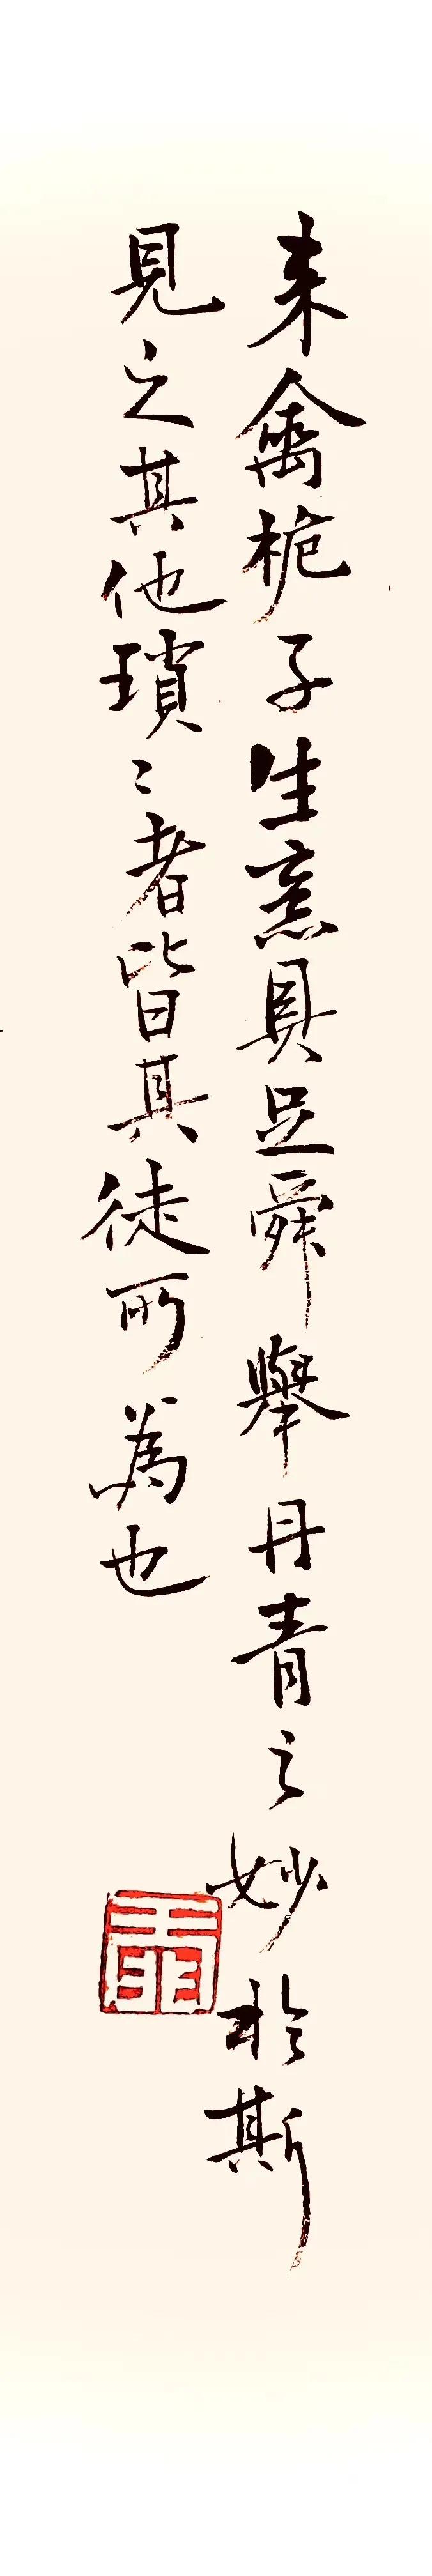 来禽栀子生意具足舜舉丹青之妙於斯
見之其他瑣〻者皆其徒所為也